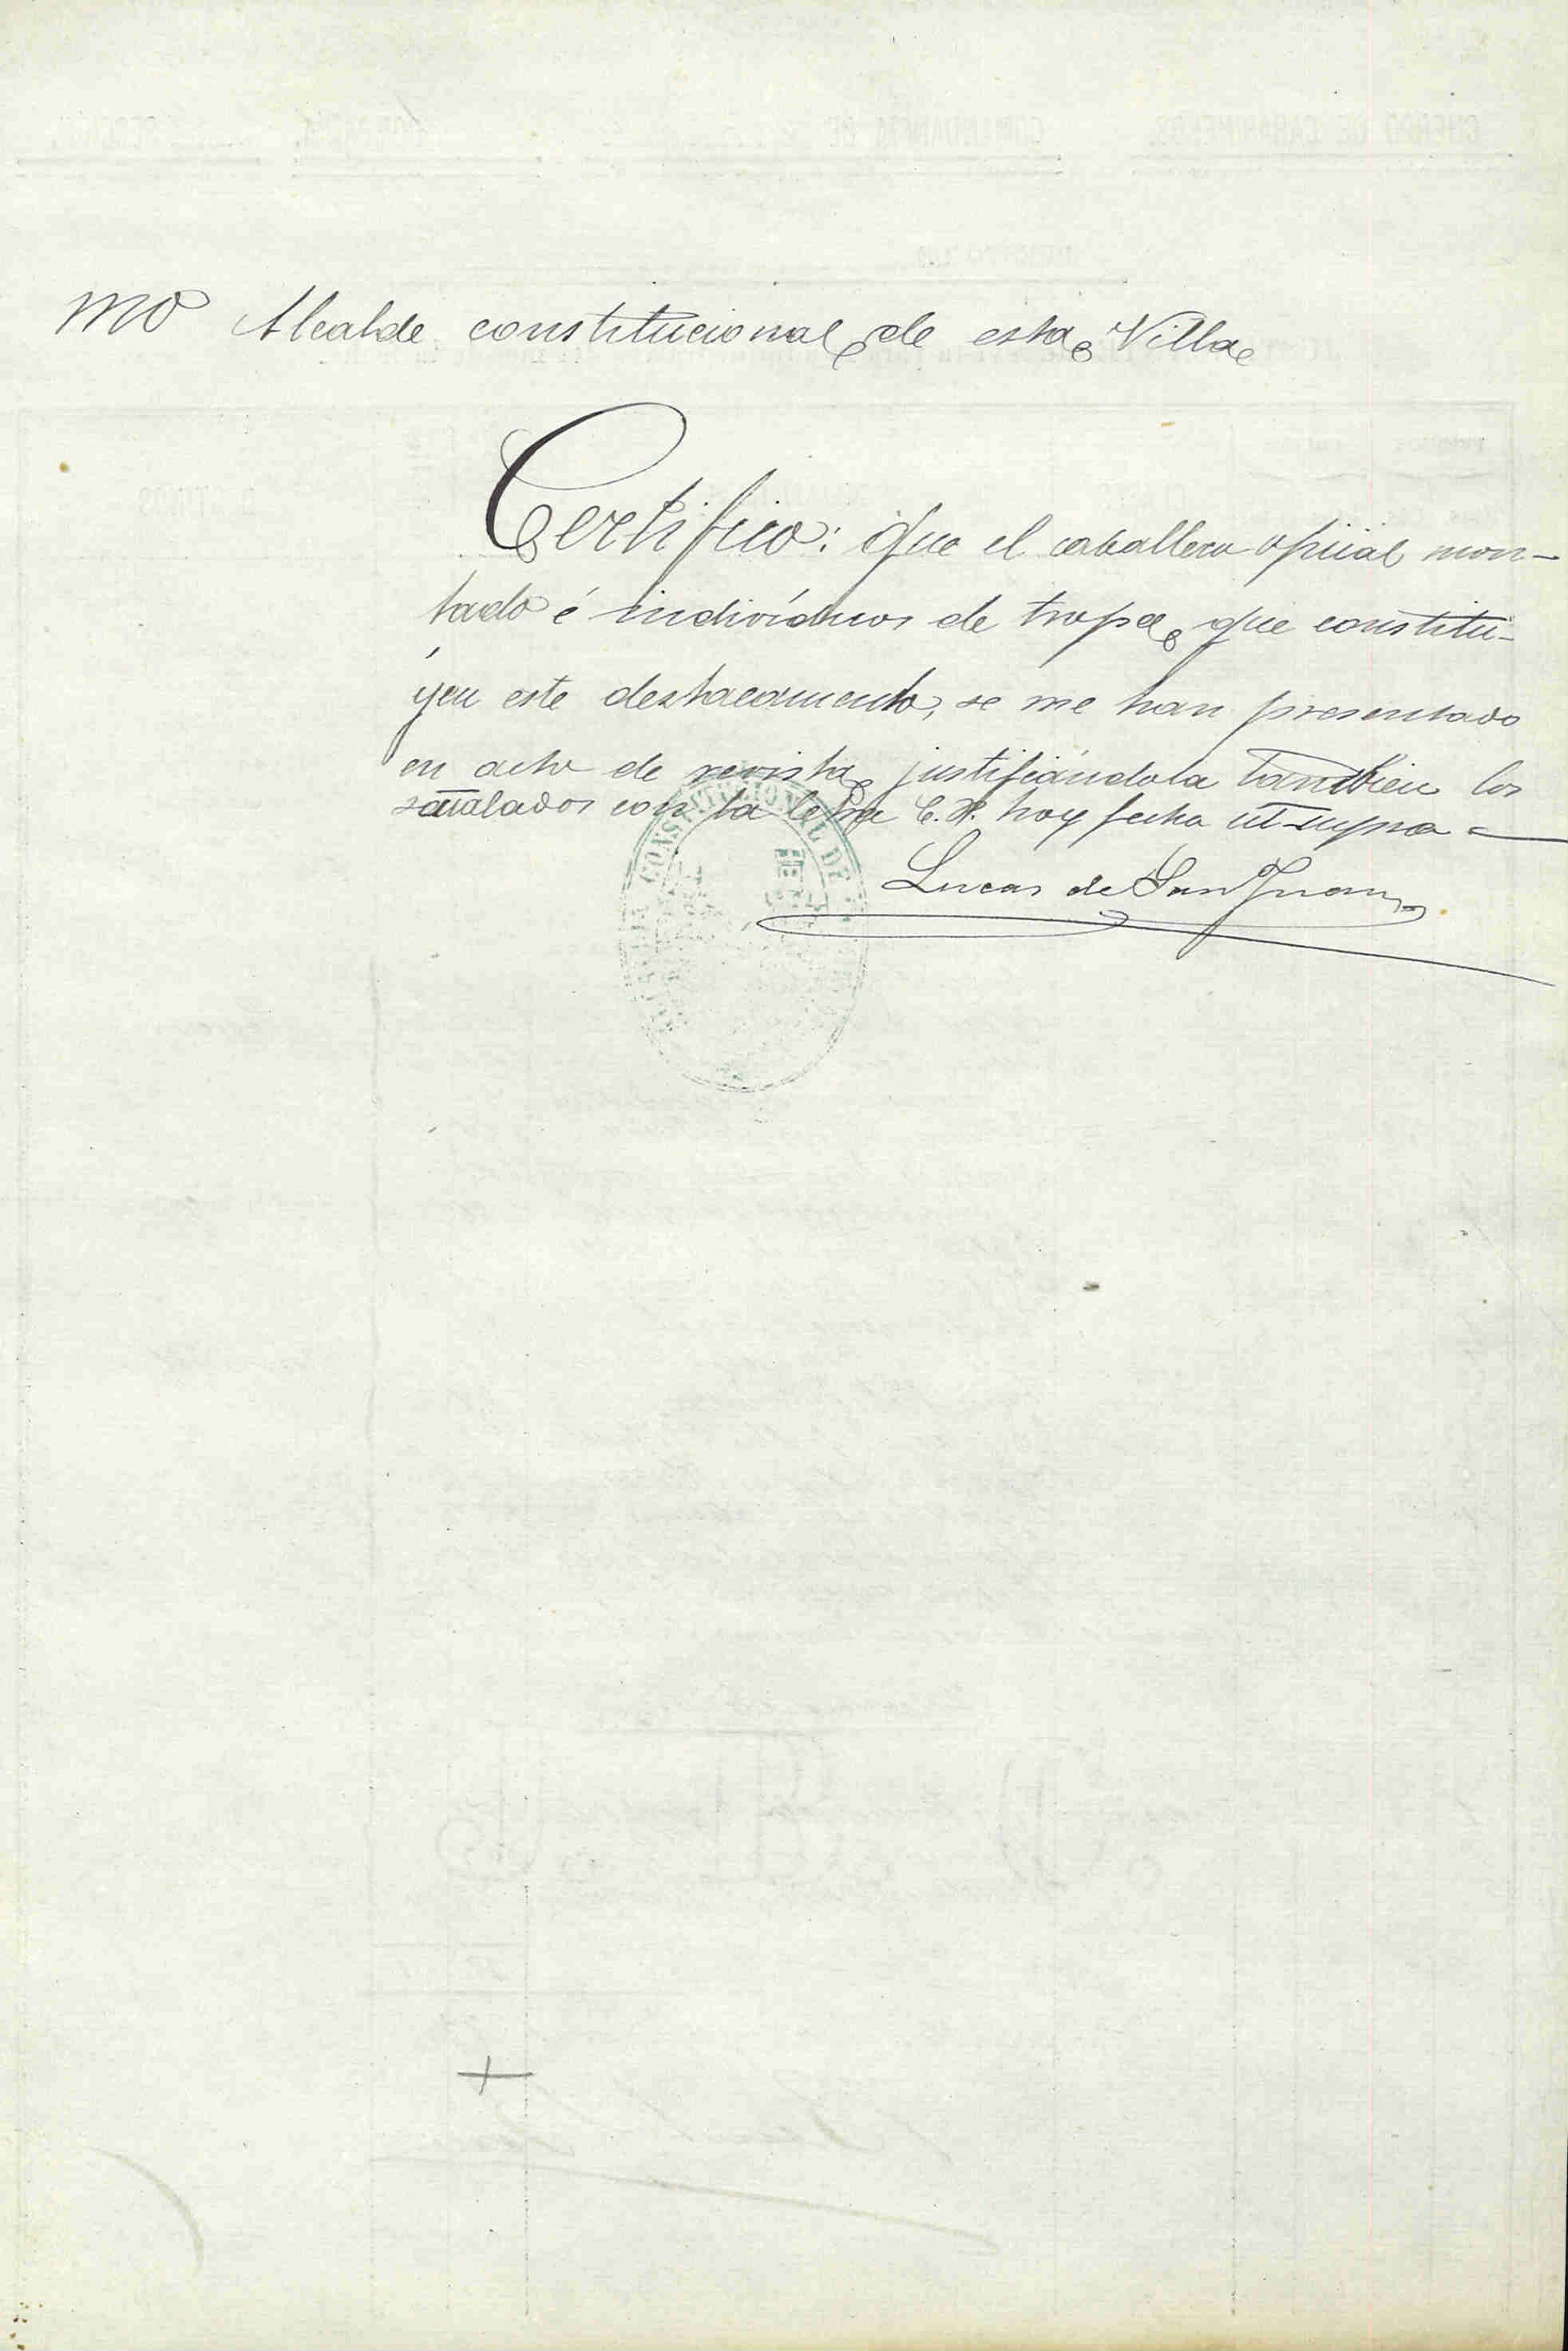 Alcalde constitucional de esta Villa
Certifico: Que el caballero oficial mon-
tado é individuos de tropa que constitu-
yen este destacamento, se me han presentado
en acto de revista justificándola tambien los
señalados con la letra C. P. hoy fecha ut supra =
Lucas de San Juan
CONSTITUCIONAL DE